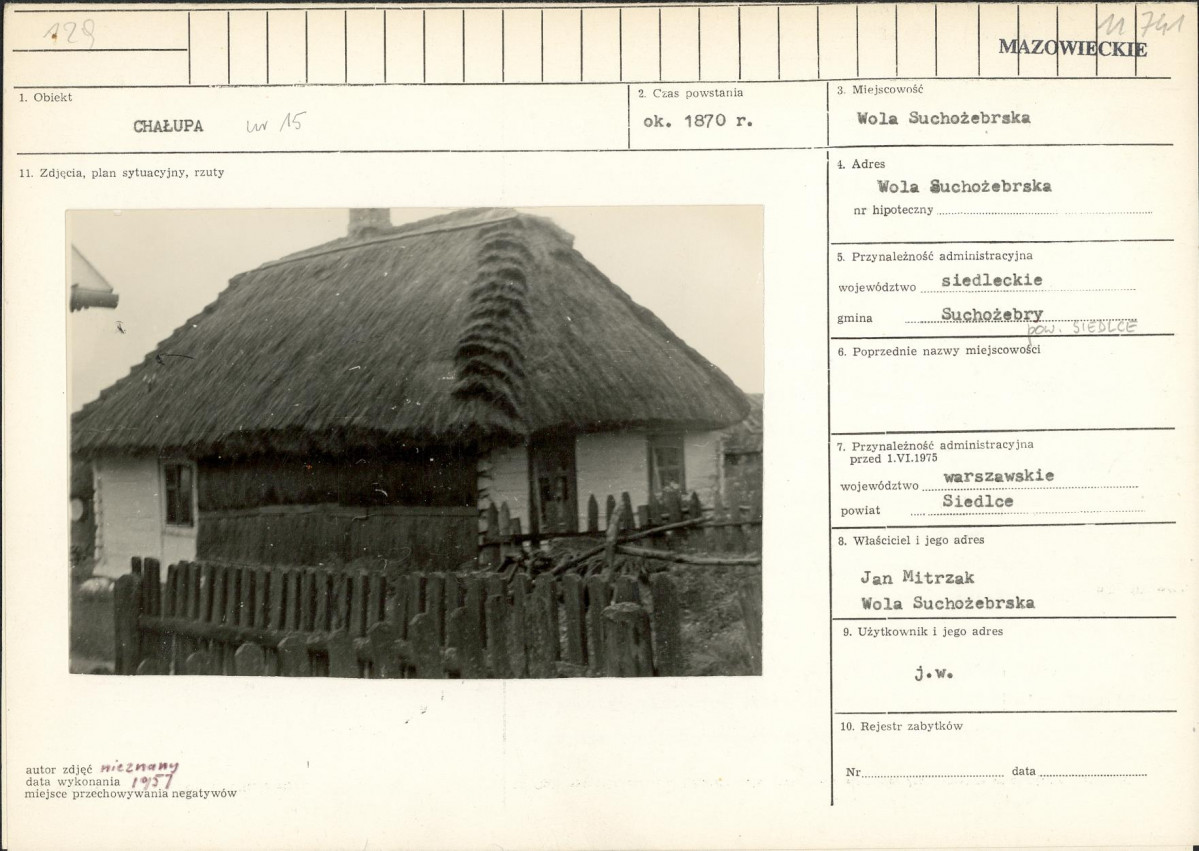 129
11 741
MAZOWIECKIE
1. Obiekt
CHAŁUPA nr 15
2. Czas powstania
ok. 1870 r.
3. Miejscowość
Wola Suchożebrska
4. Adres
Wola Suchożebrska
nr hipoteczny
5. Przynależność administracyjna
województwo siedleckie
gmina Suchożebry
pow. SIEDLCE
6. Poprzednie nazwy miejscowości
7. Przynależność administracyjna
przed 1.VI.1975
województwo warszawskie
powiat Siedlce
8. Właściciel i jego adres
Jan Mitrzak
Wola Suchożebrska
9. Użytkownik i jego adres
j.w.
10. Rejestr zabytków
Nr data
11. Zdjęcia, plan sytuacyjny, rzuty
autor zdjęć nieznany
data wykonania 1957
miejsce przechowywania negatywów